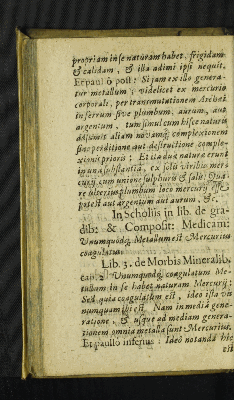 propriam in se naturam habet, frigidam
& calidam, & illa adimi ipsi nequit.
Et paul ò post: Si jam ex illo genera-
tur metallum; videlicet ex mercurio
corporali, per transmutationem Archei
in ferrum sive plumbum, aurum, aut
argentum, tum simul cum hisce naturis
adsumit aliam novamq; complexionem
sine perditione aut destructione comple-
xionis prioris; Et ita duæ naturæ erunt
in una substantia, ex solis viribus mer-
curij cum unione sulphuris & salis. Qua-
re ulterius plumbum loco mercurij esse
potest aut argentum aut aurum, &c.
In Scholiis in lib. de gra-
dib: & Composit: Medicam:
Unumquodq; Metallum est Mercurius
coagulatus.
Lib. 3. de Morbis Mineralib.
cap. 2. Unumquodq; coagulatum Me-
tallum in se habet naturam Mercurij;
Sed quia coagulatum est, ideo ista vis
nunquam ibi est. Nam in media gene-
ratione, & usque ad mediam genera-
tionem omnia metalla sunt Mercurius.
Et paullo inferius: Ideo notanda hic
est